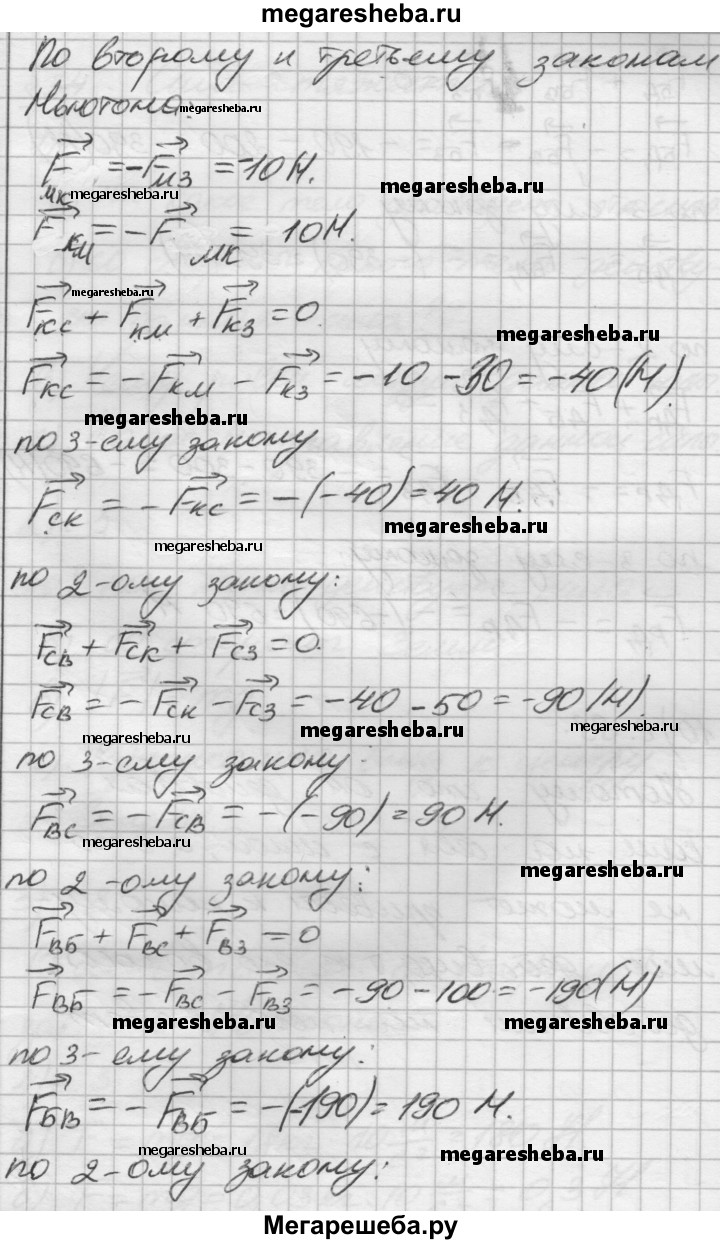 megaresheba.ru
По второму и третьему законам
Ньютона: megaresheba.ru
F мк = -F мз = -10 Н.
megaresheba.ru megaresheba.ru
F км = -F мк = 10 Н.
megaresheba.ru
F кс + F км + F кз = 0.
megaresheba.ru
F кс = -F км - F кз = -10 - 30 = -40 (Н).
megaresheba.ru
по 3-ему закону
F ск = -F кс = -(-40) = 40 Н.
megaresheba.ru
megaresheba.ru
по 2-ому закону:
F св + F ск + F сз = 0.
F св = -F ск - F сз = -40 - 50 = -90 (Н).
megaresheba.ru megaresheba.ru megaresheba.ru
по 3-ему закону
F вс = -F св = -(-90) = 90 Н.
megaresheba.ru
megaresheba.ru
по 2-ому закону:
F вб + F вс + F вз = 0
F вб = -F вс - F вз = -90 - 100 = -190 (Н)
megaresheba.ru megaresheba.ru
по 3-ему закону:
F бв = -F вб = -(-190) = 190 Н.
megaresheba.ru megaresheba.ru
по 2-ому закону:
Мегарешеба.ру